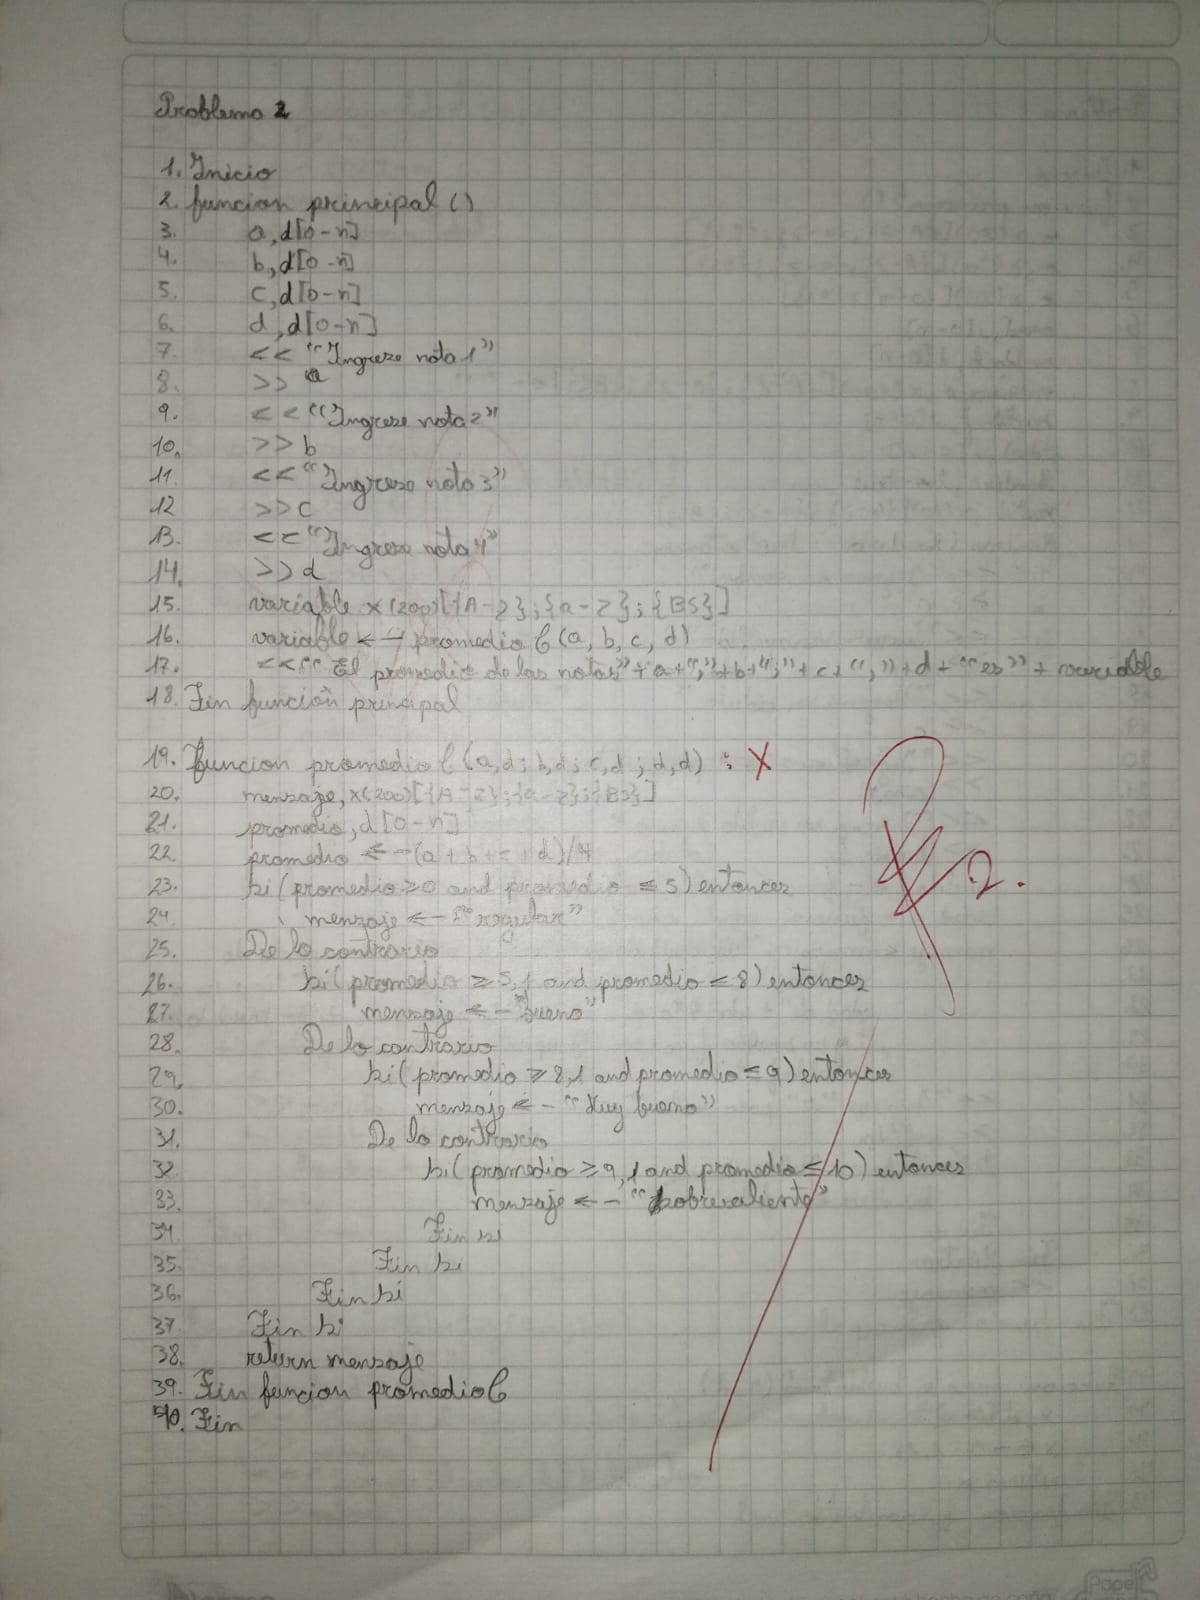 Problema 2
1. Inicio
2. funcion principal ()
3. a, d[0-n]
4. b, d[0-n]
5. c, d[0-n]
6. d, d[0-n]
7. << "Ingrese nota 1"
8. >> a
9. << "Ingrese nota 2"
10. >> b
11. << "Ingrese nota 3"
12 >> c
13. << "Ingrese nota 4"
14. >> d
15. variable x(200)[{A-Z};{a-z};{BS}]
16. variable <- promedio C(a, b, c, d)
17. << "El promedio de las notas" + a + "," + b + "," + c + "," + d + "es" + variable
18. Fin función principal
19. funcion promedio C (a,d; b,d; c,d; d,d) : X
20. mensaje, x(200)[{A-Z};{a-z};{BS}]
21. promedio, d[0-n]
22. promedio <- (a + b + c + d)/4
23. si (promedio ≥ 0 and promedio ≤ 5) entonces
24. mensaje <- "regular"
25. De lo contrario
26. si (promedio ≥ 5,1 and promedio ≤ 8) entonces
27. mensaje <- "bueno"
28. De lo contrario
29. si (promedio ≥ 8,1 and promedio ≤ 9) entonces
30. mensaje <- "Muy bueno"
31. De lo contrario
32. si (promedio ≥ 9,1 and promedio ≤ 10) entonces
33. mensaje <- "sobresaliente"
34. Fin si
35. Fin si
36. Fin si
37 Fin si
38. return mensaje
39. Fin funcion promedio C
40. Fin
2.
Papel